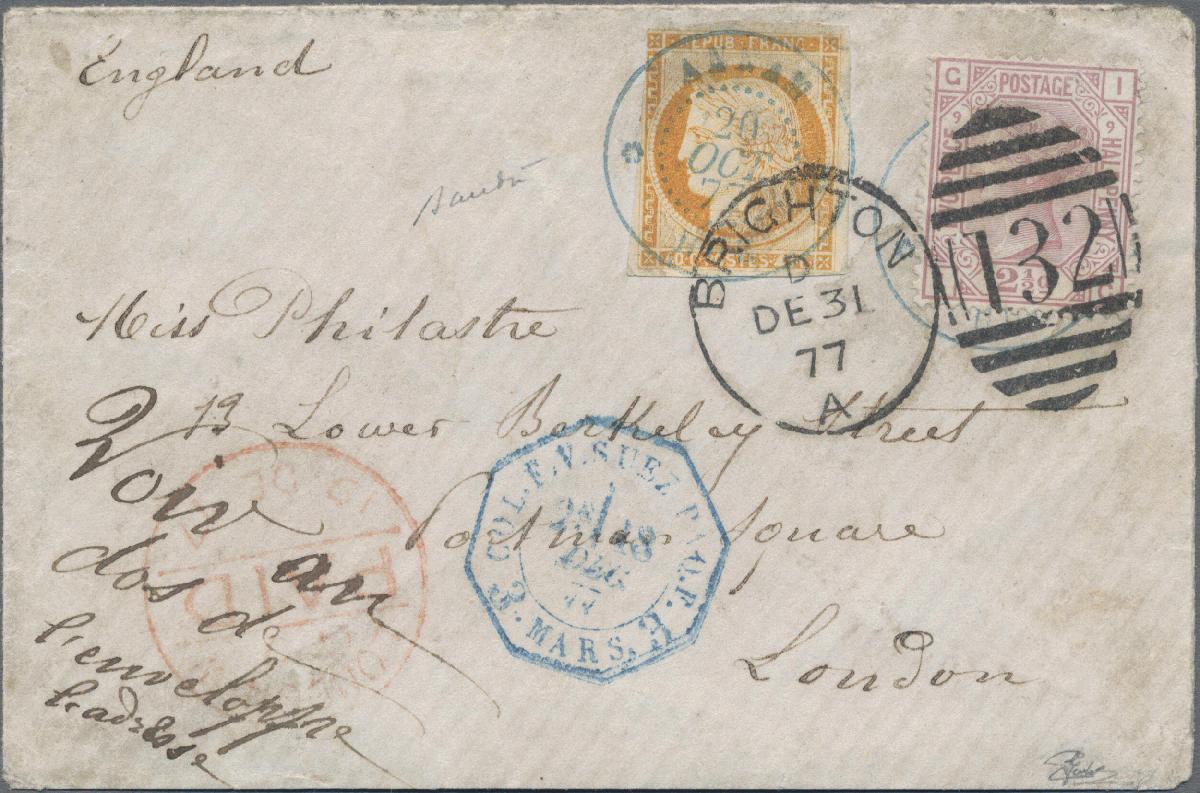 England
REPUB · FRANC ·
20
OCT
77
POSTES
G POSTAGE I
9 9
TWOPENCE HALFPENNY
2½
132
BRIGHTON
D
DE 31
77
A
Miss Philastre
13 Lower Berkeley Street
Portman Square
London
COL. F. V. SUEZ PAQ. F.
18
DEC
77
MARS.
PAID
Voir au
dos de
l'enveloppe
l'adresse